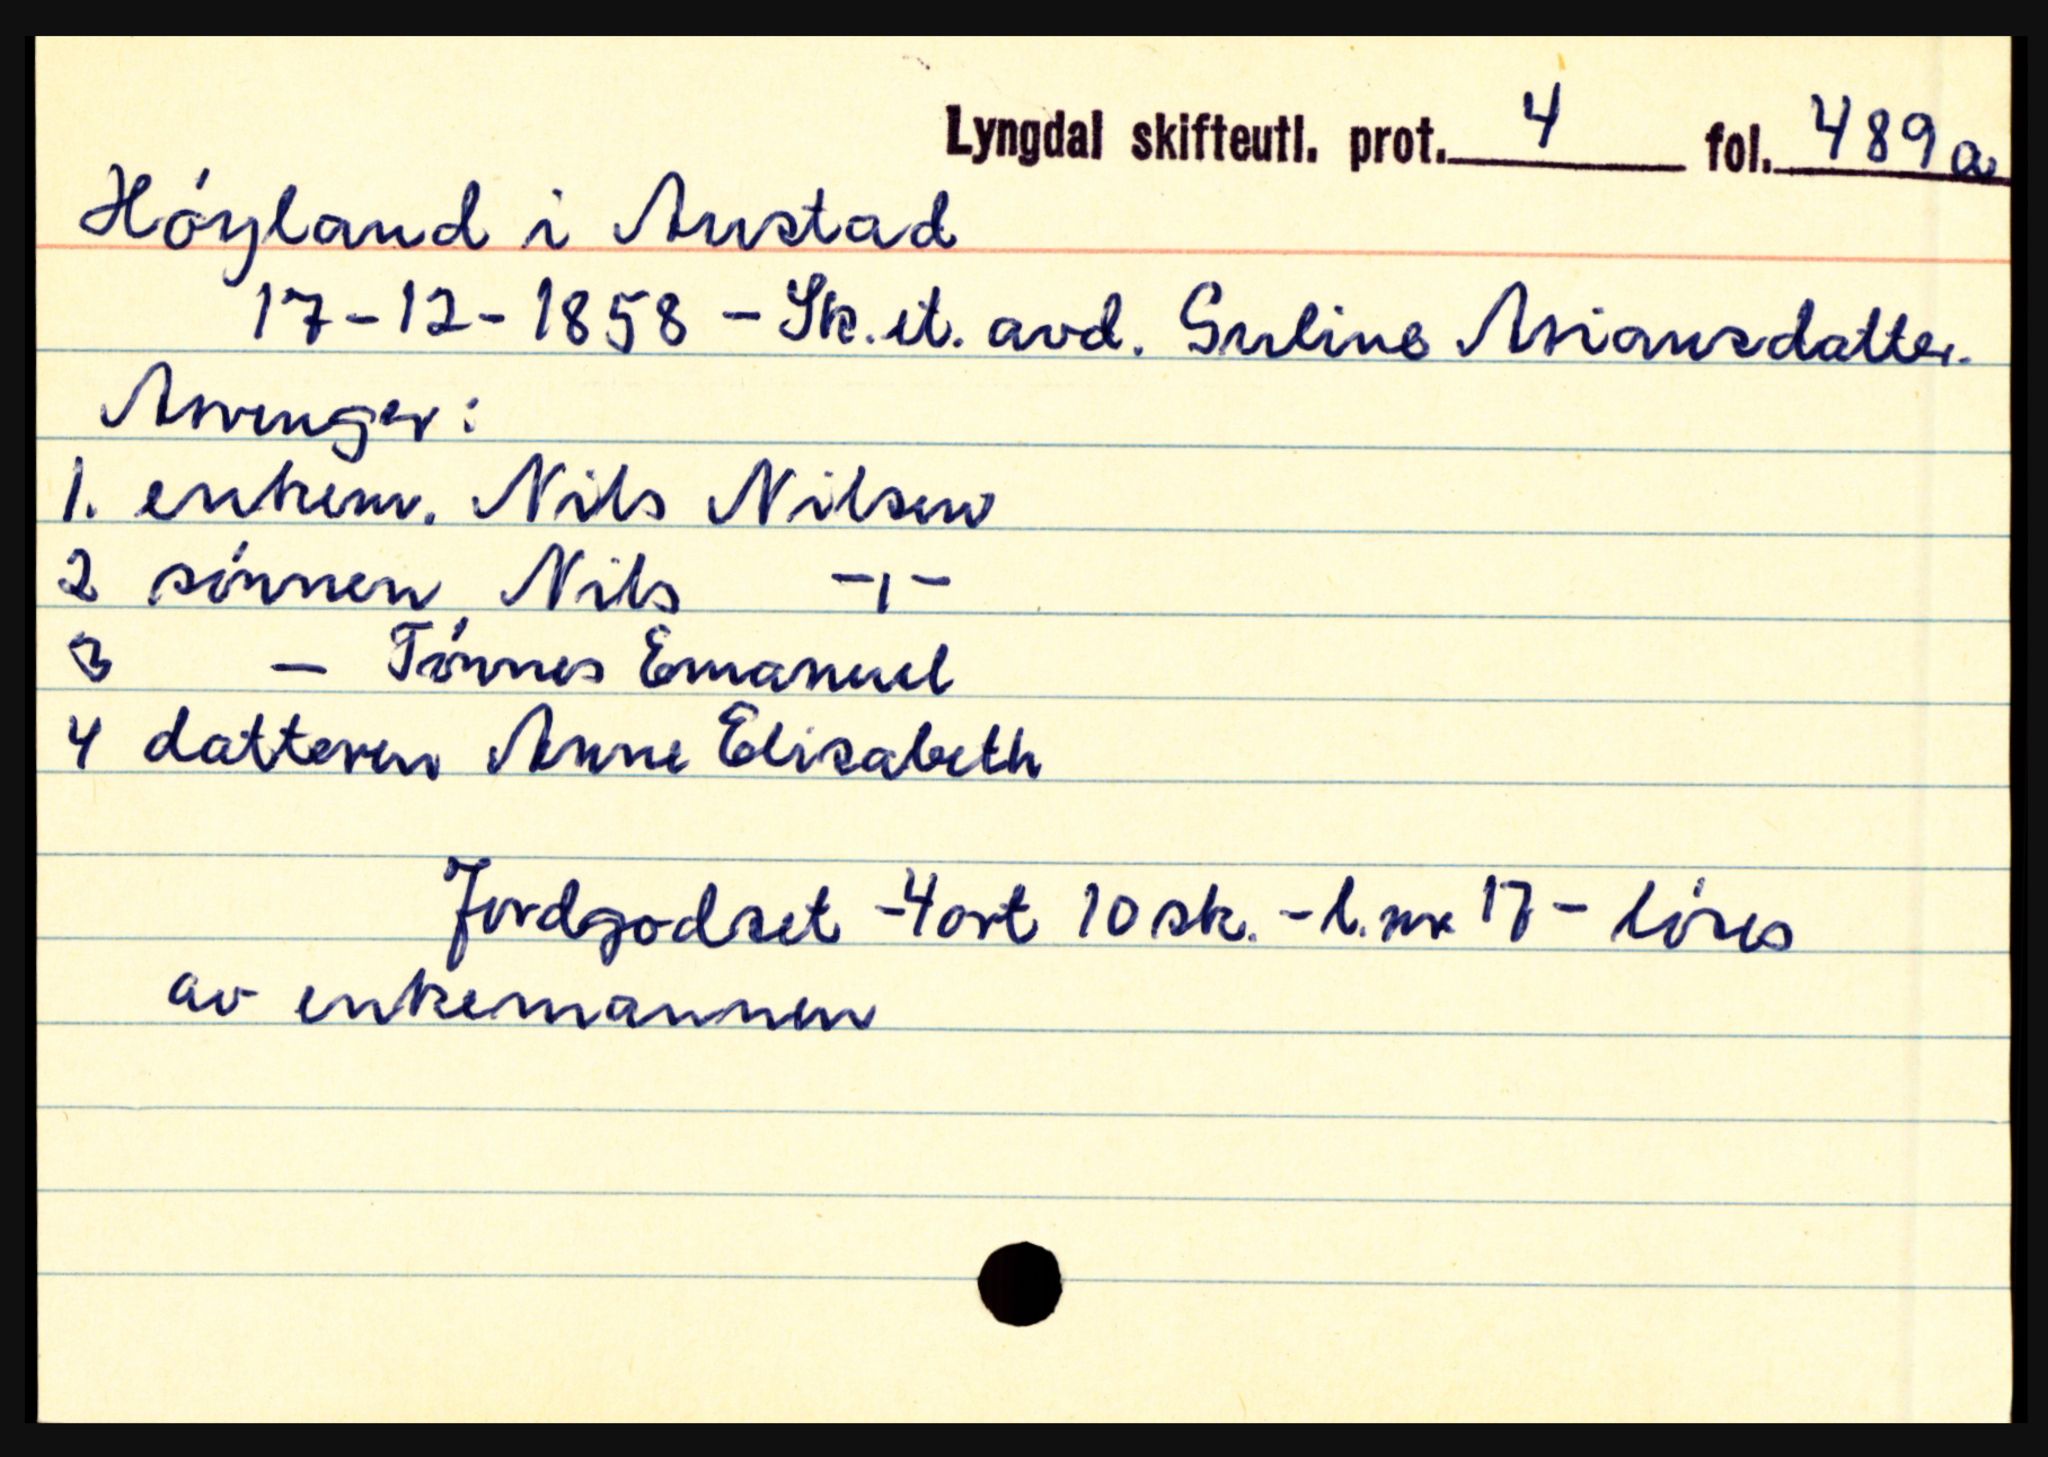 Lyngdal skifteutl. prot. 4 fol. 489a
Hóyland i Austad
17-12-1858 - Sk. et. avd. Guline Asiansdatter.
Arvinger:
1. enkem. Nils Nilsen
2 sónnen Nils -ı-
3 - Tónnes Emanuel
4 datteren Anne Elisabeth
Jordgodset -4 ort 10 sk. - l. nr 17 - lóses
av enkemannen